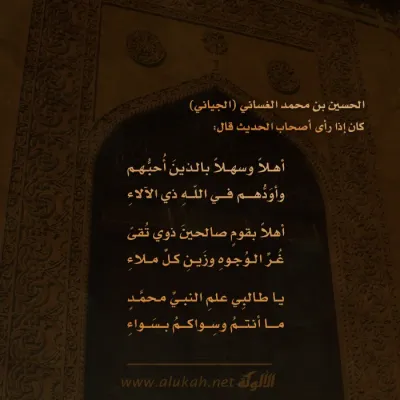 الحسين بن محمد الغساني (الجياني)
كان إذا رأى أصحاب الحديث قال:
أهلاً وسهلاً بالذينَ أُحبُّهم
وأوَدُّهم في اللّهِ ذي الآلاءِ
أهلاً بقومٍ صالحينَ ذوي تُقىً
غُرِّ الوُجوهِ وزَينِ كلِّ ملاءِ
يا طالبِي علمِ النبيِّ محمَّدٍ
ما أنتمُ وسِواكمُ بسَواءِ
www.alukah.net الألوكة